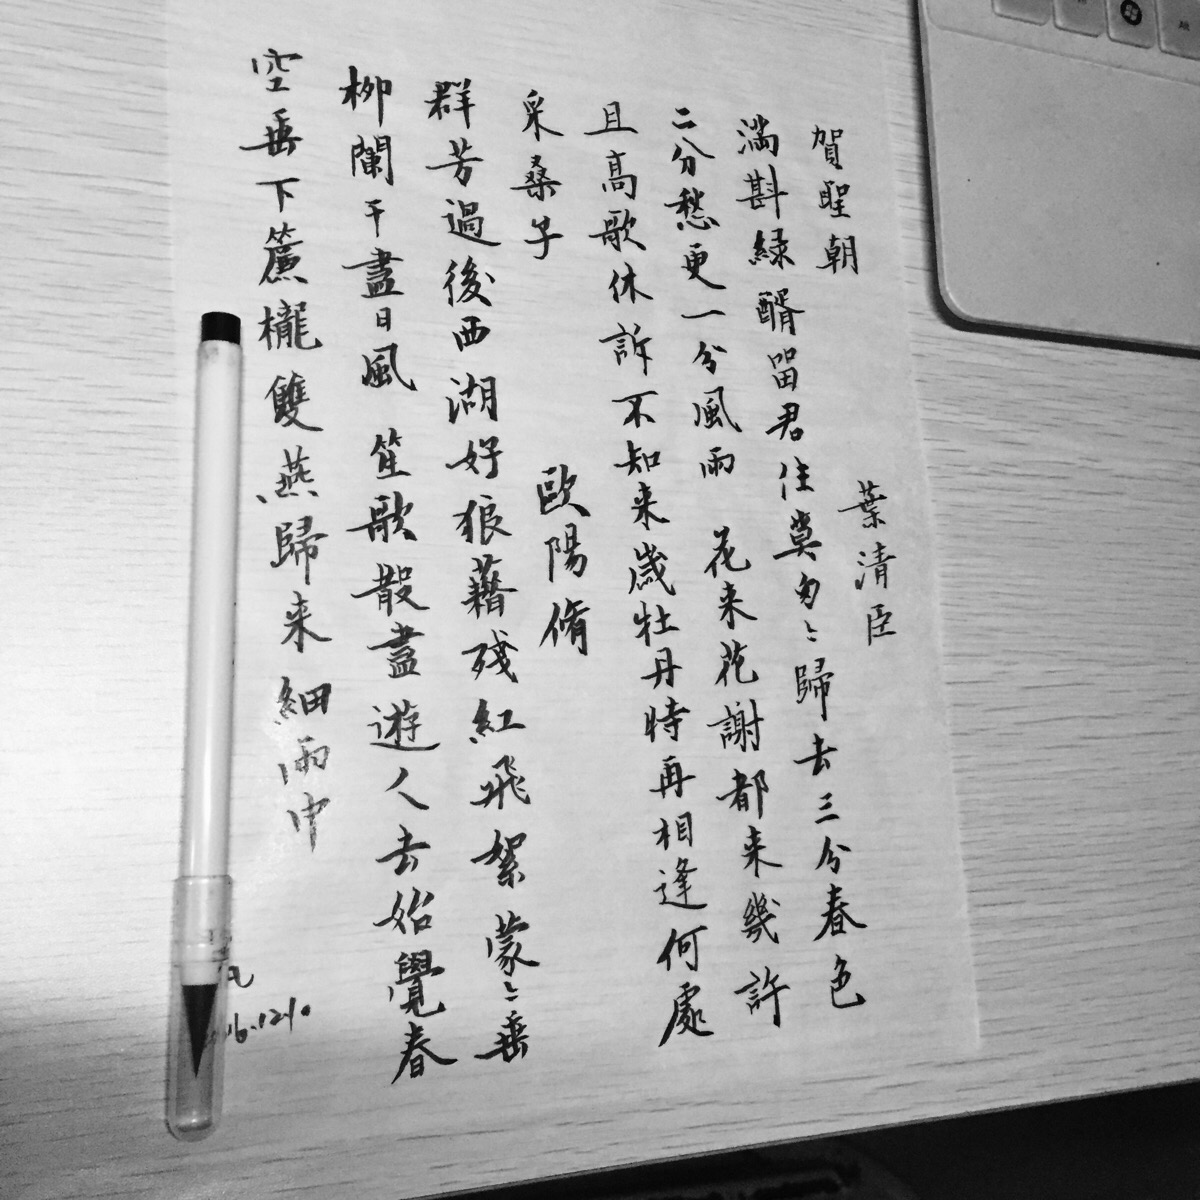 賀聖朝
葉清臣
滿斟緑醑留君住莫匆〻歸去三分春色
二分愁更一分風雨 花来花謝都来幾許
且高歌休訴不知来歲牡丹時再相逢何處
采桑子
歐陽脩
群芳過後西湖好狼藉残紅飛絮蒙〻垂
柳闌干盡日風 笙歌散盡遊人去始覺春
空垂下簾櫳雙燕歸来細雨中